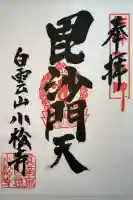 奉拝
毘沙門天
白雲山小松寺